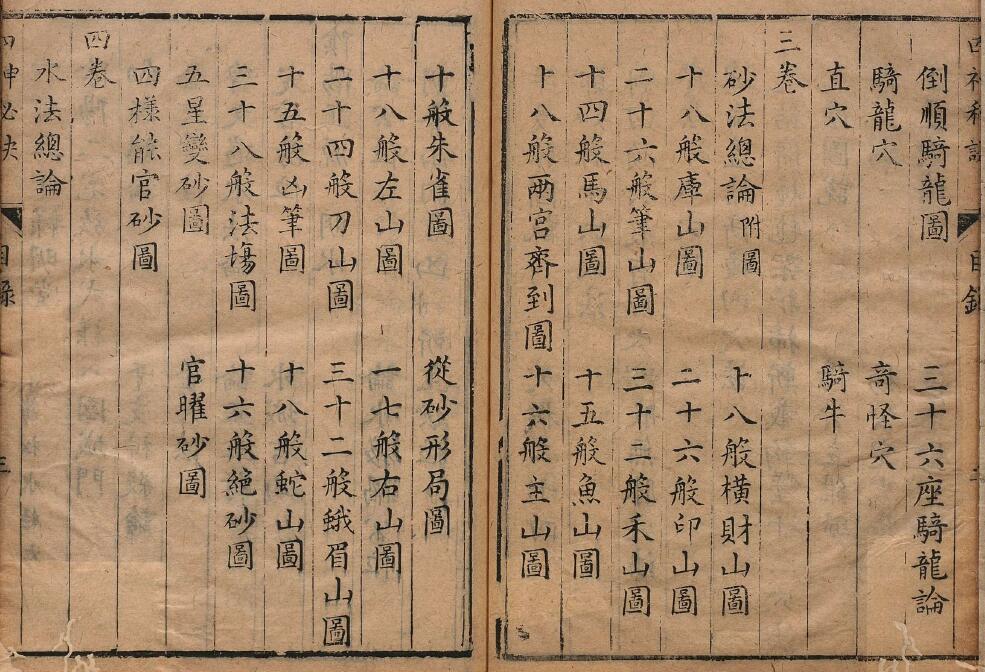 四神秘訣 目錄 二
倒順騎龍圖 三十六座騎龍論
騎龍穴 竒怪穴
直穴 騎牛
三卷
砂法總論附圖 十八般橫財山圖
十八般庫山圖 二十六般印山圖
二十六般筆山圖 三十二般禾山圖
十四般馬山圖 十五般魚山圖
十八般两宫齊到圖 十六般主山圖
十般朱雀圖 從砂形局圖
十八般左山圖 一七般右山圖
二十四般刀山圖 三十二般蛾眉山圖
十五般凶筆圖 十八般蛇山圖
三十八般法塲圖 十六般絕砂圖
五星變砂圖 官曜砂圖
四樣能官砂圖
四卷
水法總論
四神必决 目錄 三